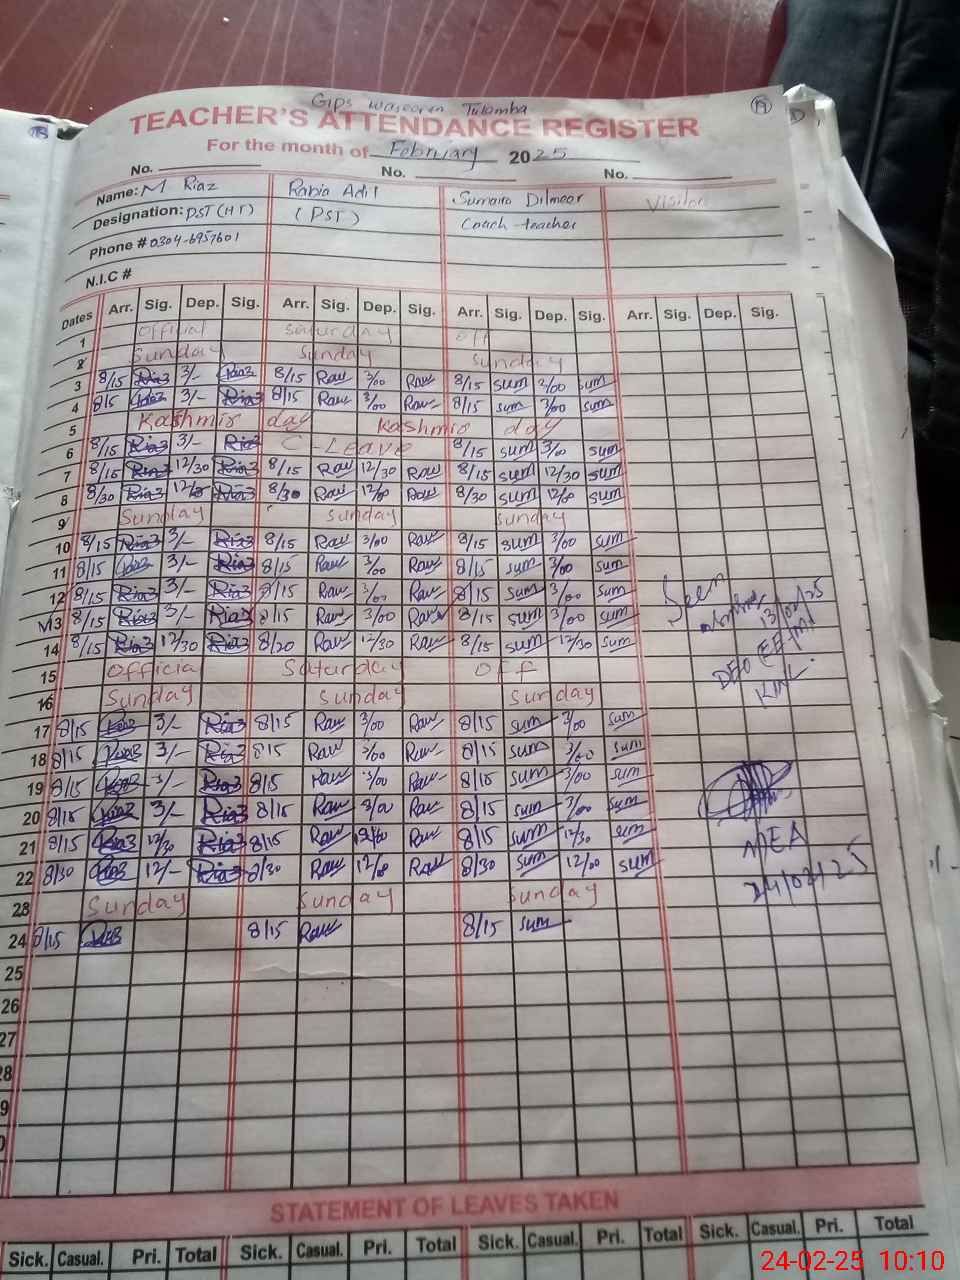 Gips Tulamba
TEACHER'S ATTENDANCE REGISTER
For the month of February 2025
No. No. No.
Name: M Riaz Rabia Adil Sumaira Dilmeer Visitor
Designation: PST (HT) (PST) Coach teacher
Phone # 0304-6957601
N.I.C #
Dates Arr. Sig. Dep. Sig. Arr. Sig. Dep. Sig. Arr. Sig. Dep. Sig. Arr. Sig. Dep. Sig.
1 Official Saturday off
2 Sunday Sunday Sunday
3 8/15 Riaz 3/- Riaz 8/15 Raw 3/00 Raw 8/15 sum 3/00 sum
4 8/15 Riaz 3/- Riaz 8/15 Raw 3/00 Raw 8/15 sum 3/00 sum
5 Kashmir day Kashmir day
6 8/15 Riaz 3/- Riaz C-Leave 8/15 sum 3/00 sum
7 8/15 Riaz 12/30 Riaz 8/15 Raw 12/30 Raw 8/15 sum 12/30 sum
8 8/30 Riaz 12/00 Riaz 8/30 Raw 12/00 Raw 8/30 sum 12/00 sum
9 Sunday Sunday Sunday
10 8/15 Riaz 3/- Riaz 8/15 Raw 3/00 Raw 8/15 sum 3/00 sum
11 8/15 Riaz 3/- Riaz 8/15 Raw 3/00 Raw 8/15 sum 3/00 sum
12 8/15 Riaz 3/- Riaz 8/15 Raw 3/00 Raw 8/15 sum 3/00 sum
13 8/15 Riaz 3/- Riaz 8/15 Raw 3/00 Raw 8/15 sum 3/00 sum
14 8/15 Riaz 12/30 Riaz 8/20 Raw 12/30 Raw 8/15 sum 12/30 sum
Seen
13/02/25
DEO (EE-M)
KWL.
15 Official Saturday Off
16 Sunday Sunday Sunday
17 8/15 Riaz 3/- Riaz 8/15 Raw 3/00 Raw 8/15 sum 3/00 sum
18 8/15 Riaz 3/- Riaz 8/15 Raw 3/00 Raw 8/15 sum 3/00 sum
19 8/15 Riaz 3/- Riaz 8/15 Raw 3/00 Raw 8/15 sum 3/00 sum
20 8/15 Riaz 3/- Riaz 8/15 Raw 3/00 Raw 8/15 sum 3/00 sum
21 8/15 Riaz 12/30 Riaz 8/15 Raw 12/30 Raw 8/15 sum 12/30 sum
22 8/30 Riaz 12/- Riaz 8/30 Raw 12/00 Raw 8/30 sum 12/00 sum
MEA
24/02/25
23 Sunday Sunday Sunday
24 8/15 Riaz 8/15 Raw 8/15 sum
25
26
27
28
9
0
STATEMENT OF LEAVES TAKEN
Sick. Casual. Pri. Total Sick. Casual. Pri. Total Sick. Casual. Pri. Total Sick. Casual. Pri. Total
24-02-25 10:10